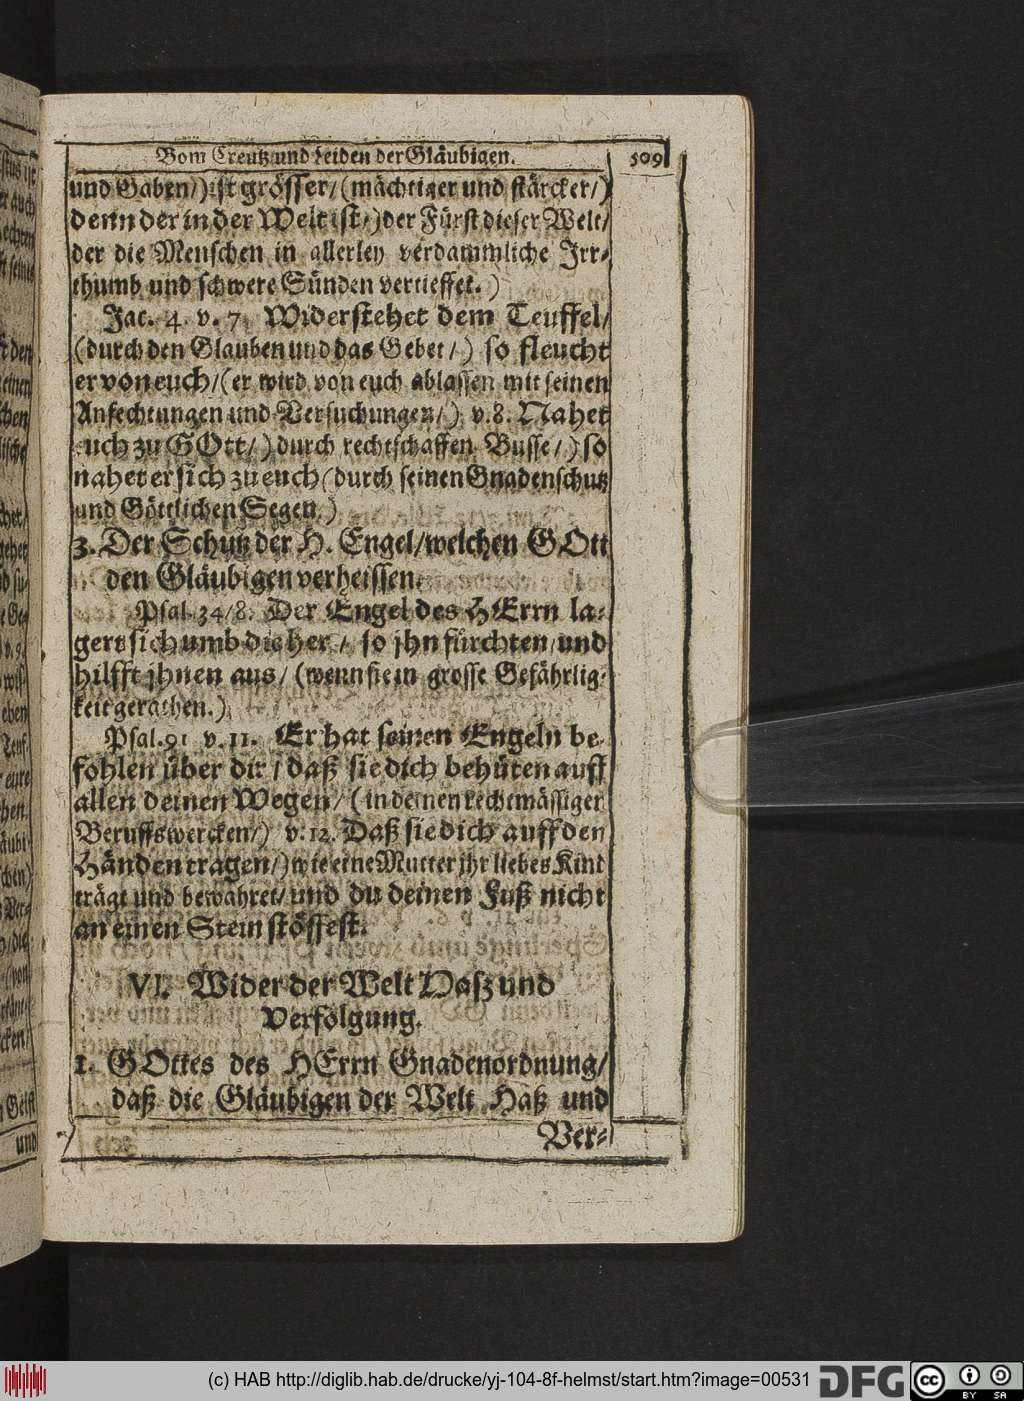 Vom Creutz und Leiden der Gläubigen. 509
und Gaben/) ist grösser/ (mächtiger und stärcker/)
denn der in der Welt ist/ ) der Fürst dieser Welt/
der die Menschen in allerley verdammliche Irr-
thumb und schwere Sünden vertieffet. )
Jac. 4. v. 7. Widerstehet dem Teuffel/
(durch den Glauben und das Gebet / ) so fleucht
er von euch/ (er wird von euch ablassen mit seinen
Anfechtungen und Versuchungen/ ) v. 8. Nahet
euch zu GOtt/ ) durch rechtschaffen Busse / ) so
nahet er sich zu euch (durch seinen Gnadenschutz
und Göttlichen Segen. )
3. Der Schutz der H. Engel/ welchen GOtt
den Gläubigen verheissen.
Psal. 34/8. Der Engel des HErrn la-
gert sich umb die her / so jhn fürchten/ und
hilfft jhnen aus/ (wenn sie in grosse Gefährlig-
keit gerathen. )
Psal. 91 v. 11. Er hat seinen Engeln be-
fohlen über dir / daß sie dich behüten auff
allen deinen Wegen/ (in deinen rechtmässigen
Beruffswercken/) v. 12. Daß sie dich auff den
Händen tragen/ ) wie eine Mutter jhr liebes Kind
trägt und bewahret/ und du deinen Fuß nicht
an einen Stein stössest.
VI. Wider der Welt Haß und
Verfolgung.
1. GOttes des HErrn Gnadenordnung/
daß die Gläubigen der Welt Haß und
Ver-
(c) HAB http://diglib.hab.de/drucke/yj-104-8f-helmst/start.htm?image=00531
DFG
cc BY SA